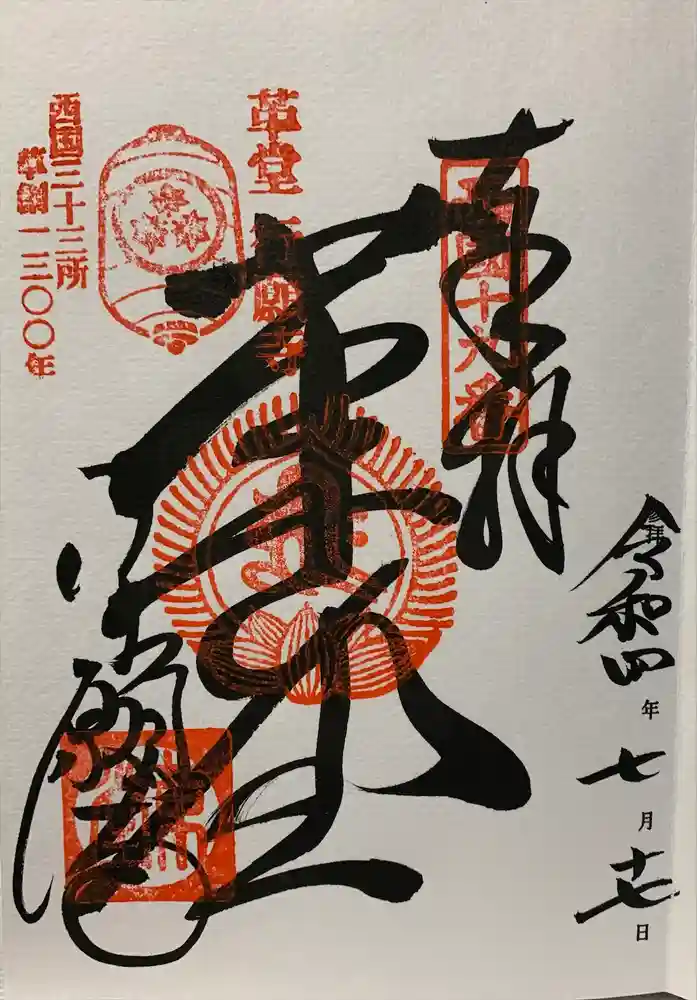 参拝
令和四年七月十七日
奉拝
西国十九番
革堂
革堂 行願寺
行願寺
西国三十三所
草創一三〇〇年